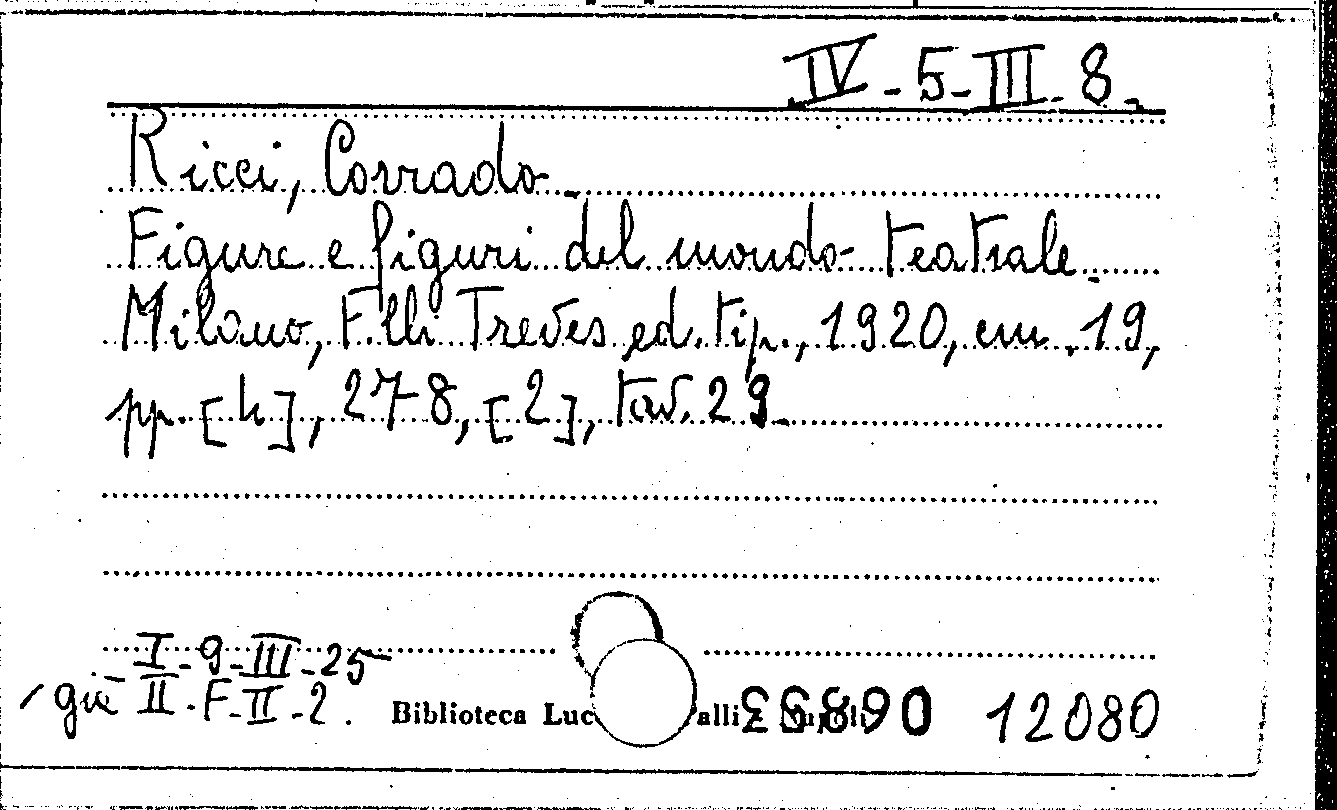 IV - 5 - III - 8 -
Ricci, Corrado -
Figure e figuri del mondo teatrale -
Milano, F.lli Treves ed. tip., 1920, cm. 19,
pp. [4], 278, [2], tav. 29 -
I - 9 - III - 25
già II - F - II - 2.
Biblioteca Luc alli
12080